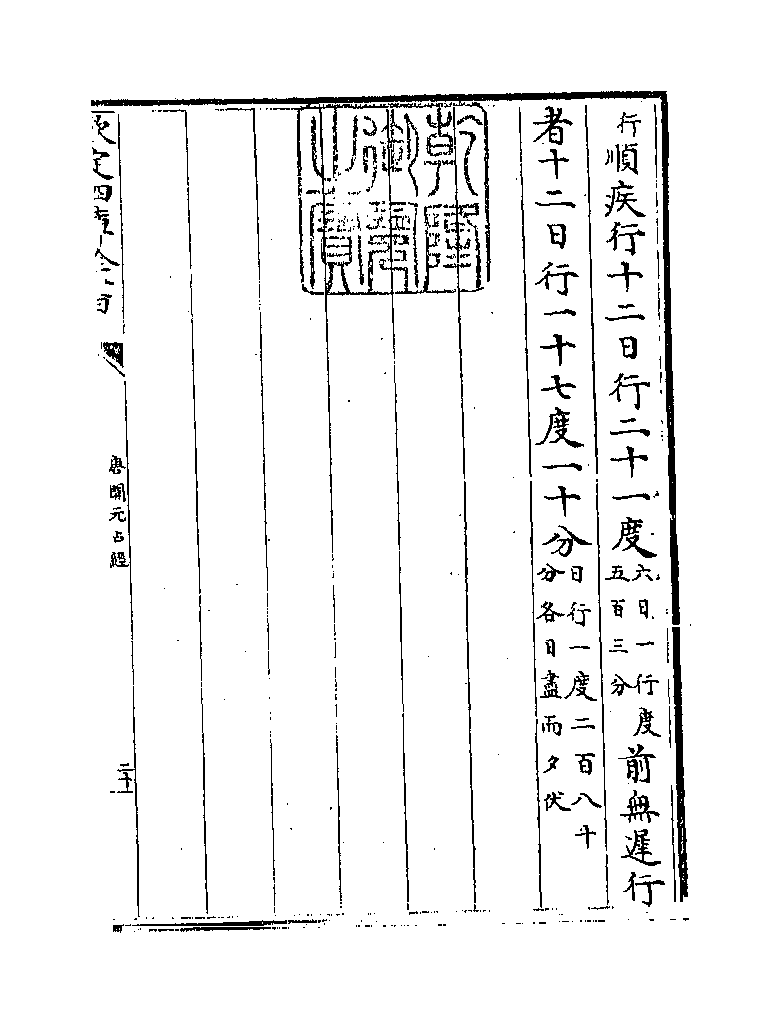 行順疾行十二日行二十一度六日一行度五百三分前無遲行
者十二日行一十七度一十分日行一度二百八十分各日盡而夕伏
乾隆御覽之寶
欽定四庫全書
唐開元占經
二十